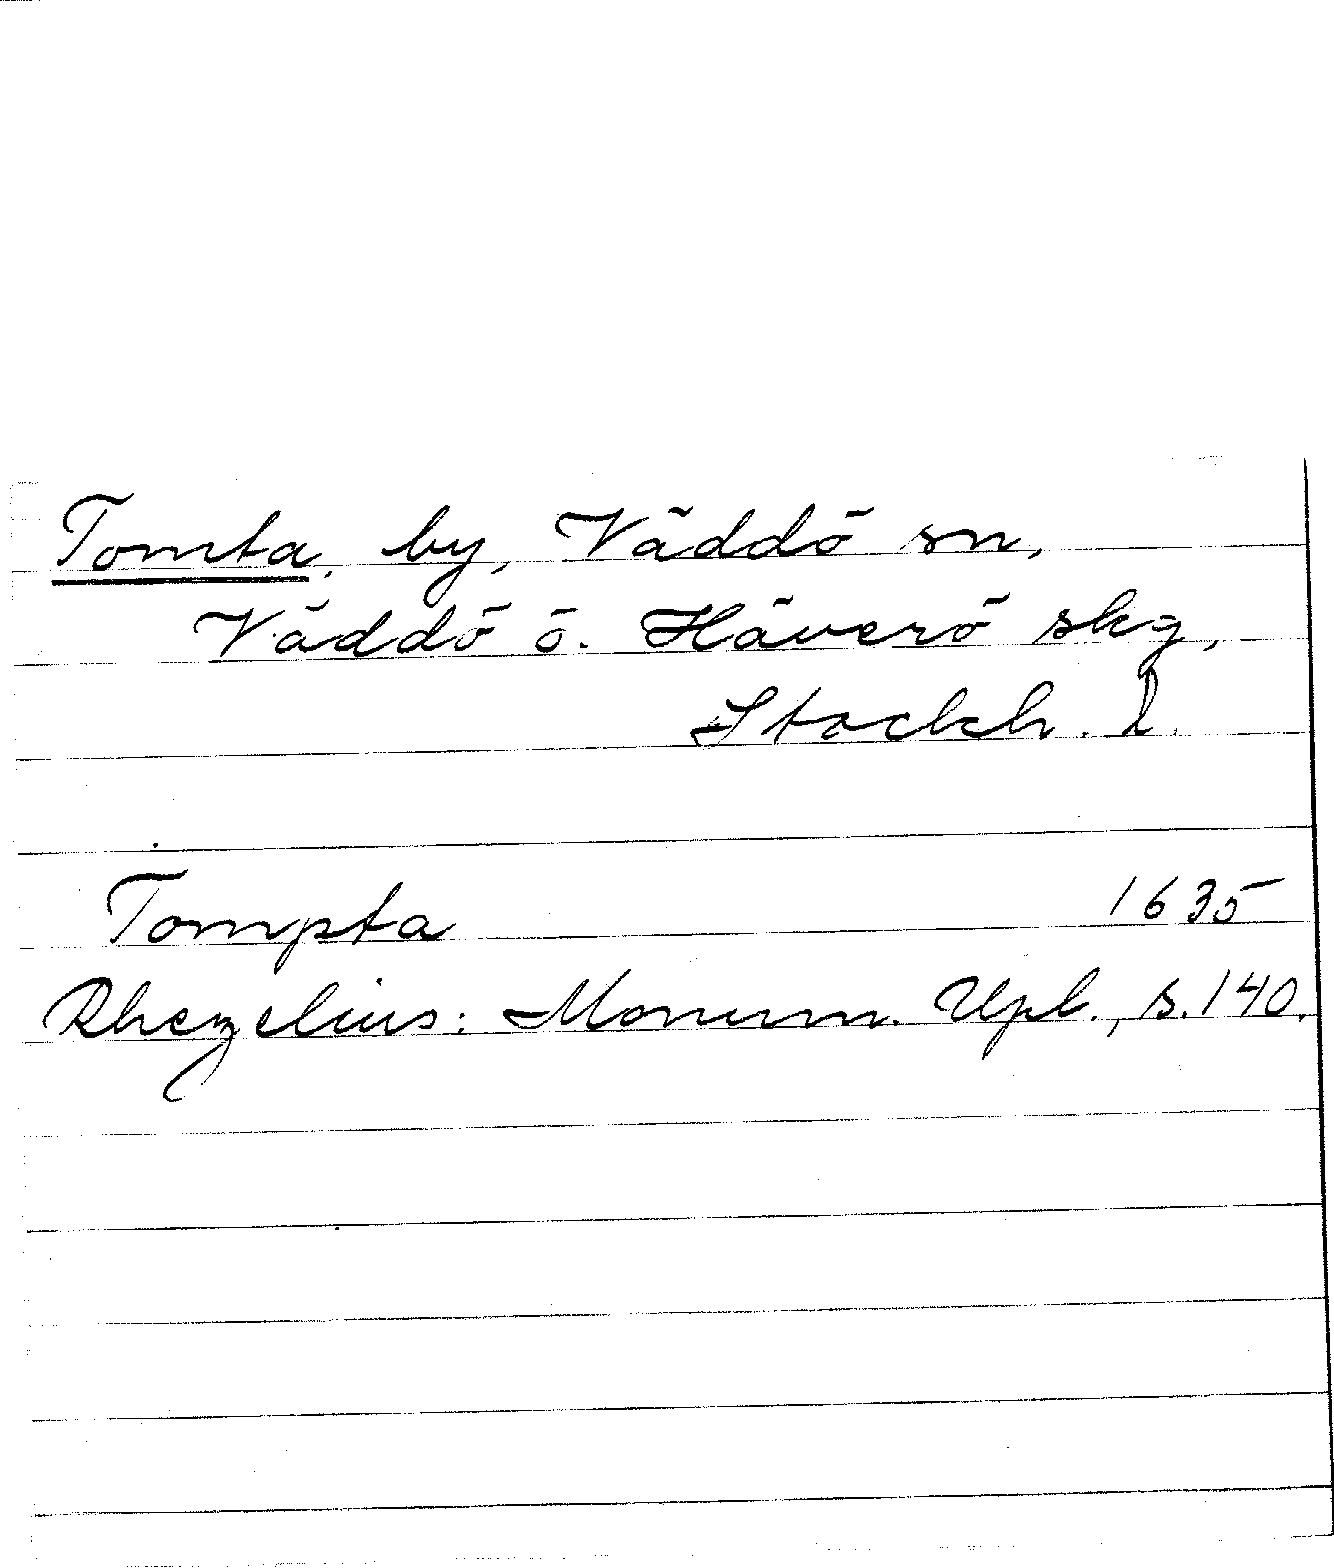 Tomta, by, Väddö sn,
Väddö ö. Häverö skg,
Stockh. l.
Tompta 1635
Rhezelius: Monum. Upl., s. 140.